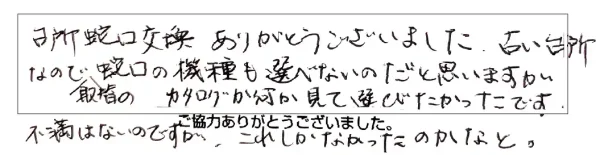 台所蛇口交換 ありがとうございました。古い台所
なので蛇口の機種も選べないのだと思いますが
取替の カタログか何か見て選びたかったです。
ご協力ありがとうございました。
不満はないのですが、これしかなかったのかなと。